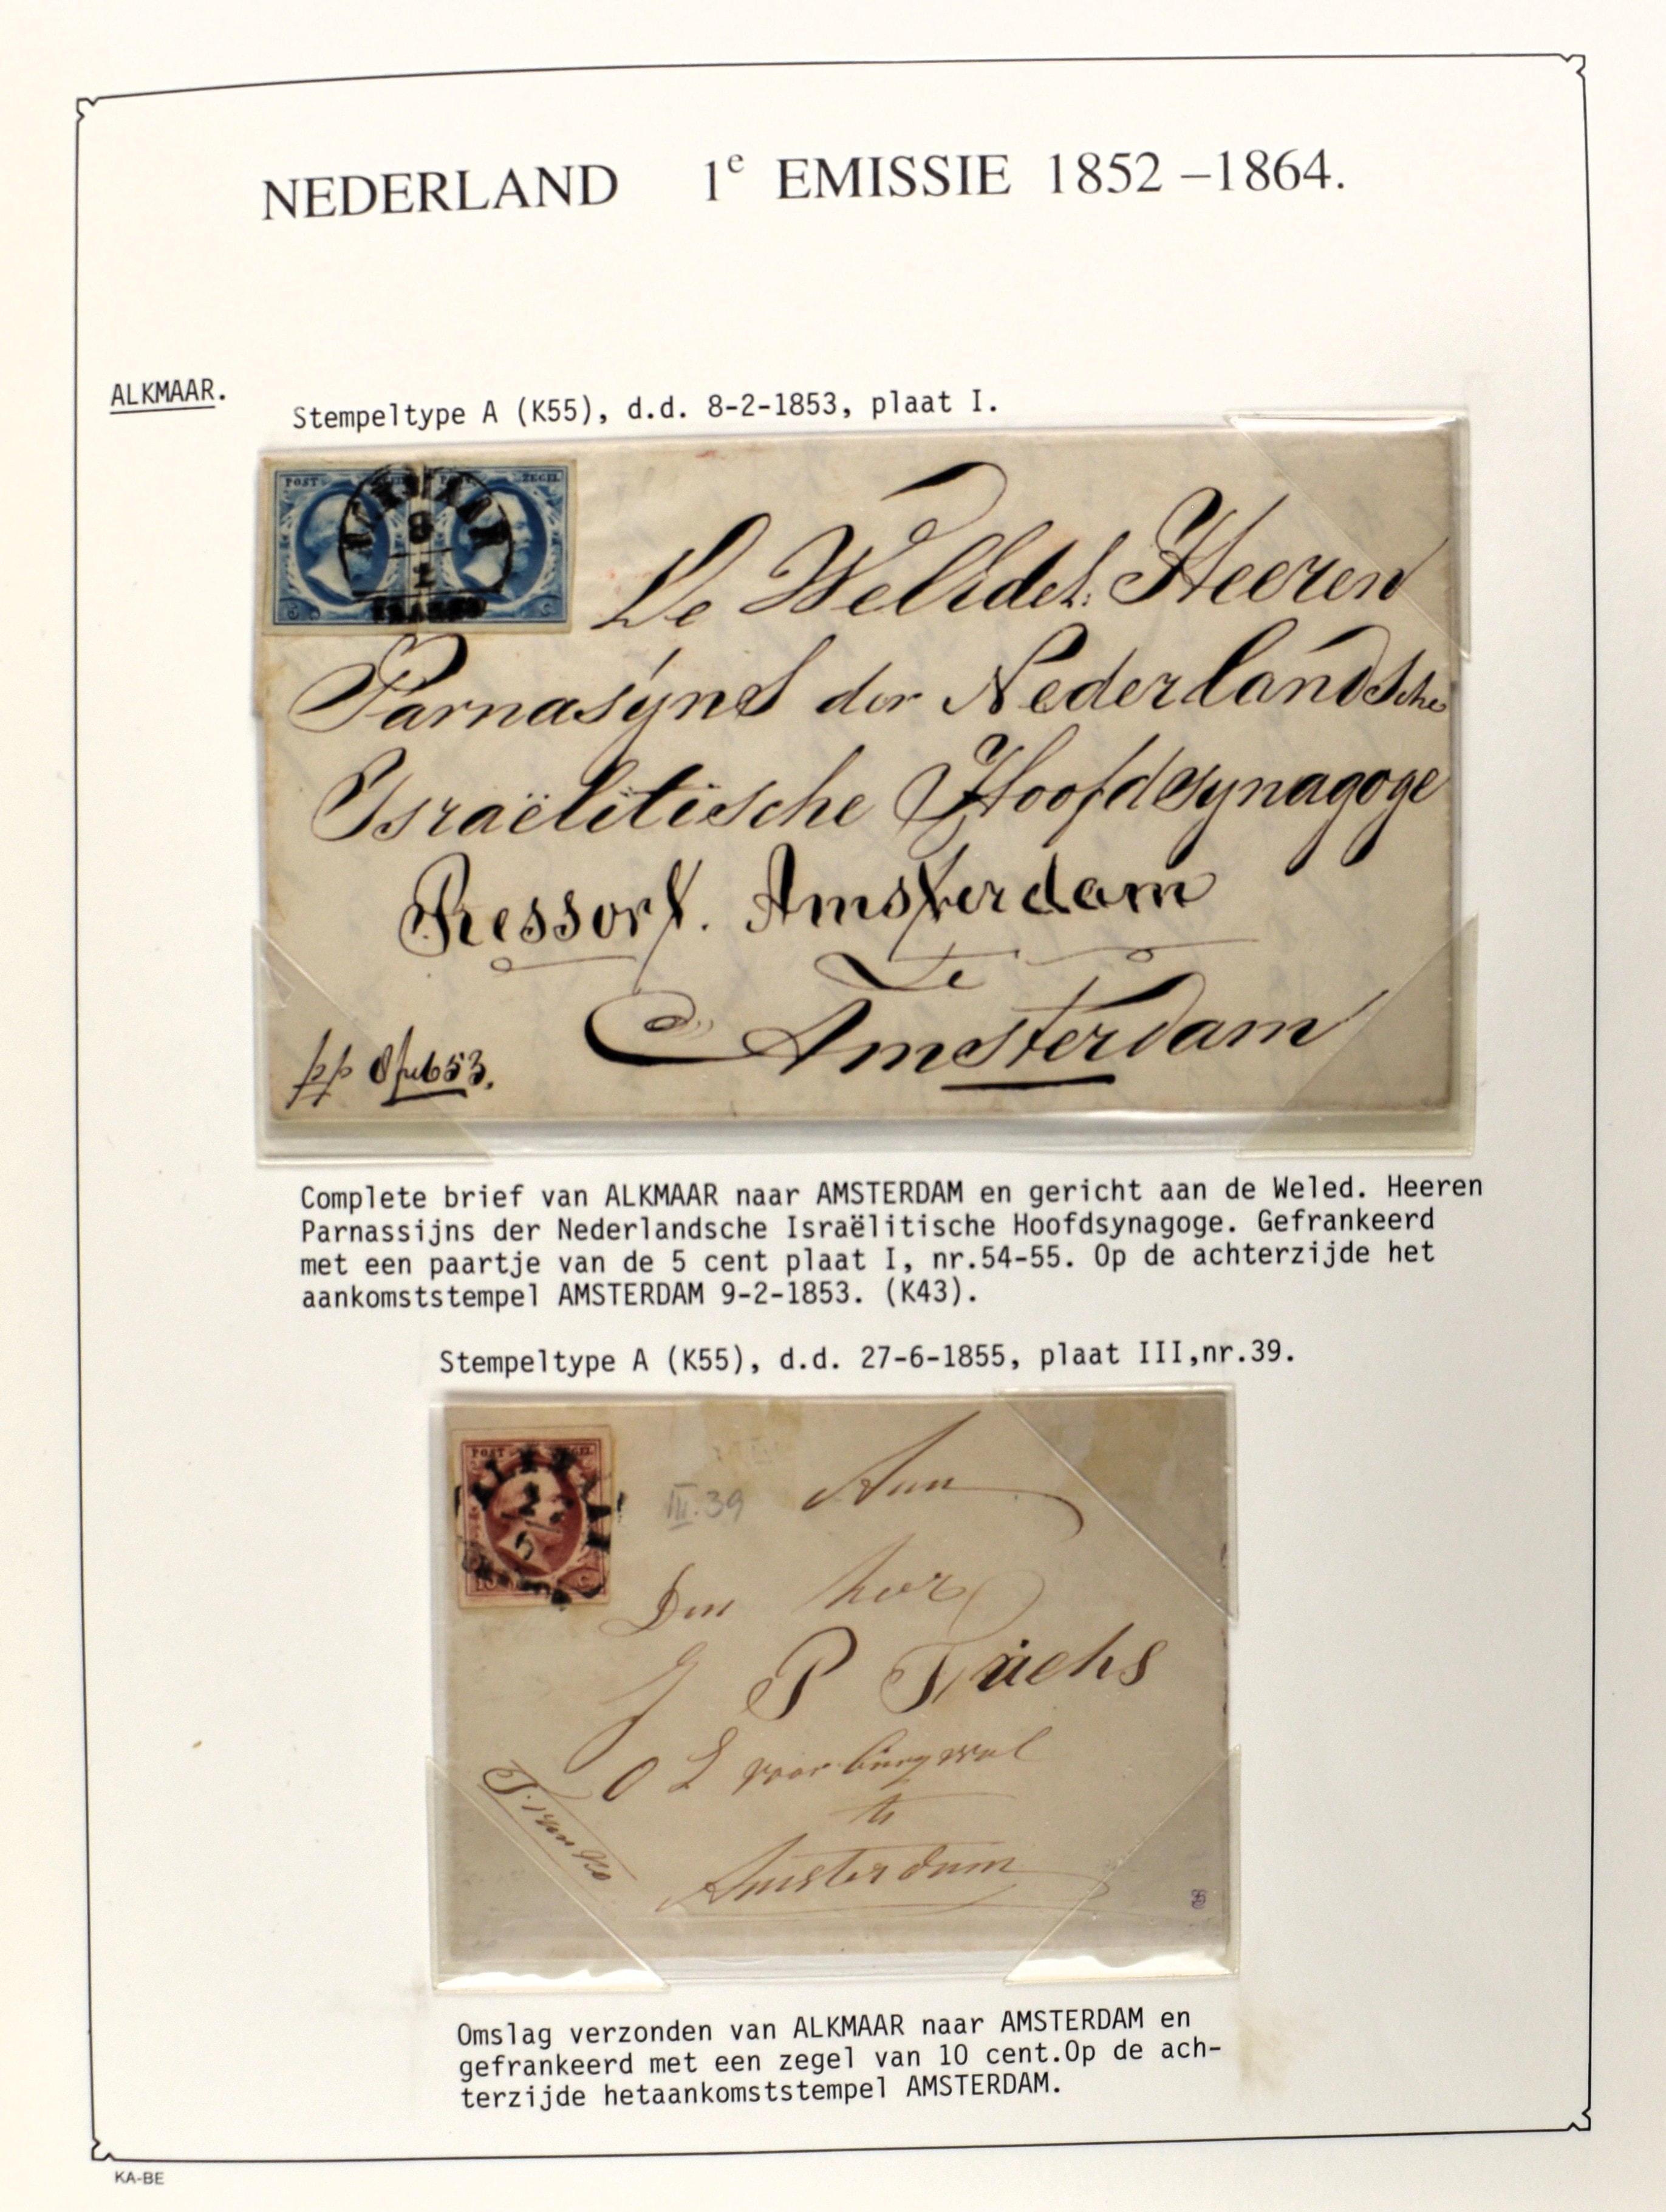 NEDERLAND 1e EMISSIE 1852 –1864.
ALKMAAR.
Stempeltype A (K55), d.d. 8-2-1853, plaat I.
POST ZEGEL
ALKMAAR
8
2
FRANCO
5 C
De WelEdel. Heeren
Parnasÿns der Nederlandsche
Israëlitische Hoofdsynagoge
Ressort. Amsterdam
Te
Amsterdam
pp 8 feb 53.
Complete brief van ALKMAAR naar AMSTERDAM en gericht aan de Weled. Heeren
Parnassijns der Nederlandsche Israëlitische Hoofdsynagoge. Gefrankeerd
met een paartje van de 5 cent plaat I, nr.54-55. Op de achterzijde het
aankomststempel AMSTERDAM 9-2-1853. (K43).
Stempeltype A (K55), d.d. 27-6-1855, plaat III,nr.39.
POST ZEGEL
III.39
Aan
Den heer
J P
O Z voorburgwal
te
Amsterdam
Franko
Omslag verzonden van ALKMAAR naar AMSTERDAM en
gefrankeerd met een zegel van 10 cent.Op de ach-
terzijde hetaankomststempel AMSTERDAM.
KA-BE